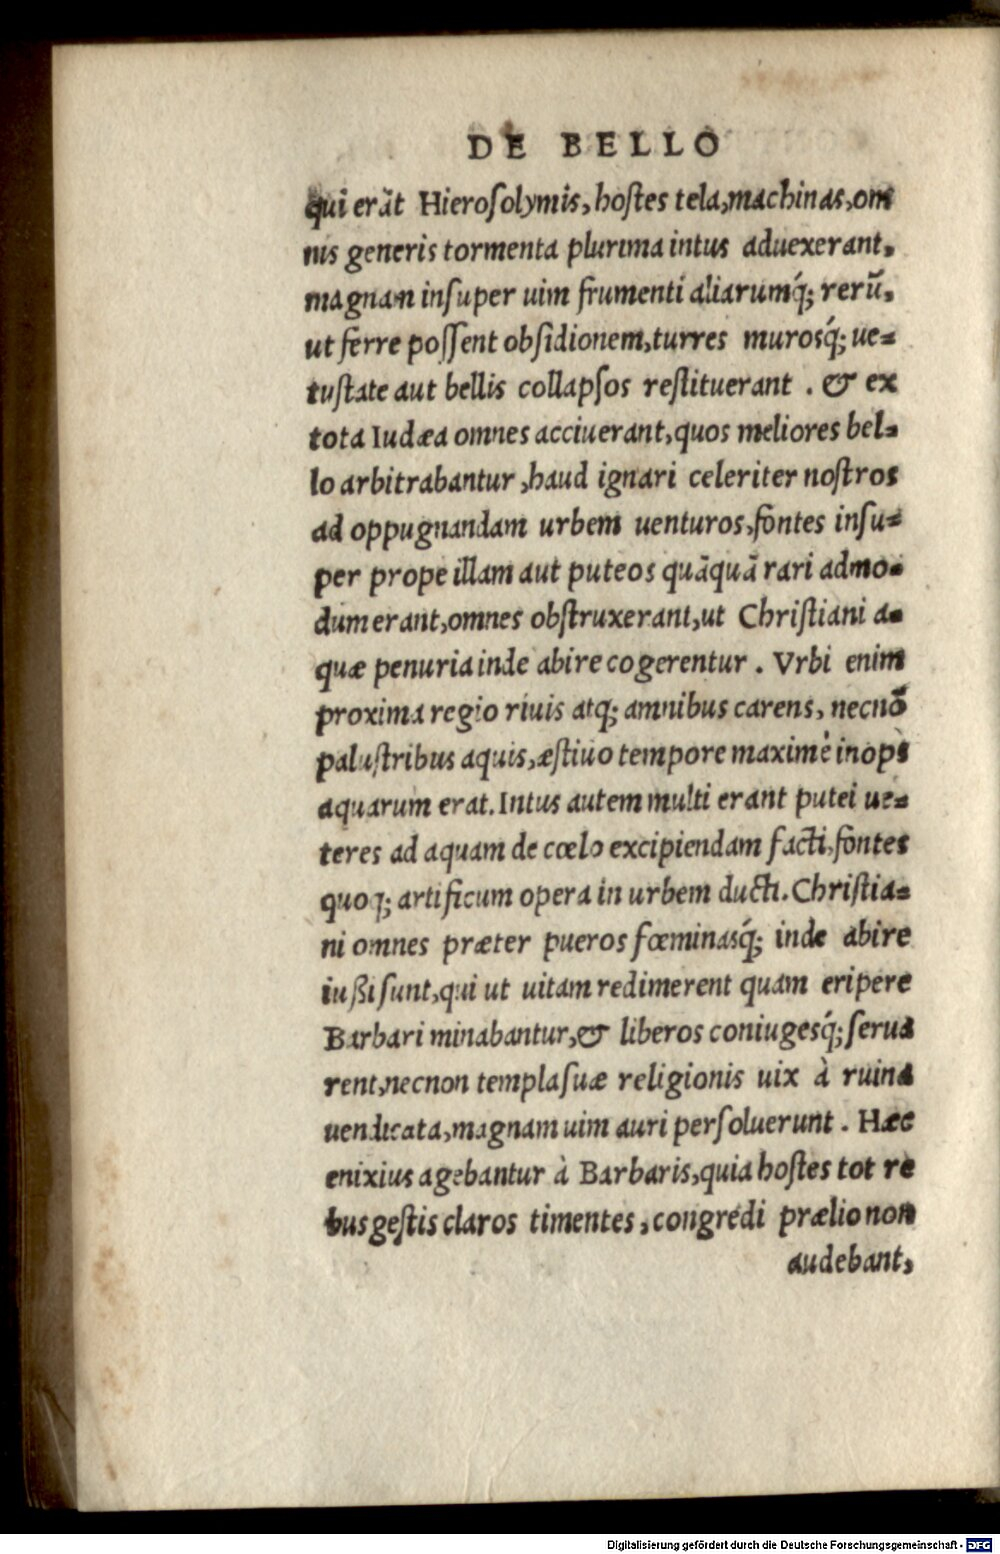 DE BELLO
qui erãt Hieroſolymis, hoſtes tela, machinas, om
nis generis tormenta plurima intus aduexerant,
magnam inſuper uim frumenti aliarumq́; rerũ,
ut ferre poſſent obſidionem, turres murosq́; ue=
tuſtate aut bellis collapſos reſtituerant . & ex
tota Iudæa omnes acciuerant, quos meliores bel=
lo arbitrabantur, haud ignari celeriter noſtros
ad oppugnandam urbem uenturos, fontes inſu=
per prope illam aut puteos quãquã rari admo=
dum erant, omnes obſtruxerant, ut Chriſtiani a=
quæ penuria inde abire cogerentur . Vrbi enim
proxima regio riuis atq; amnibus carens, necnõ
paluſtribus aquis, æſtiuo tempore maximè inops
aquarum erat. Intus autem multi erant putei ue=
teres ad aquam de cœlo excipiendam facti, fontes
quoq; artificum opera in urbem ducti. Chriſtia=
ni omnes præter pueros fœminasq́; inde abire
iußi ſunt, qui ut uitam redimerent quam eripere
Barbari minabantur, & liberos coniugesq́; ſerua
rent, necnon templa ſuæ religionis uix à ruina
uendicata, magnam uim auri perſoluerunt . Hæc
enixius agebantur à Barbaris, quia hoſtes tot re
bus geſtis claros timentes, congredi prælio non
audebant,
Digitalisierung gefördert durch die Deutsche Forschungsgemeinschaft - DFG